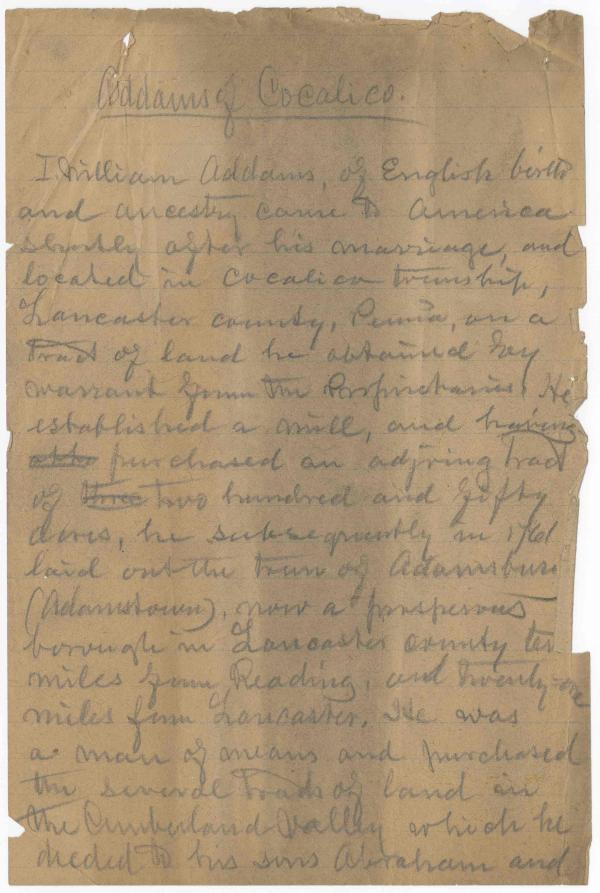 Addams of Cocalico.
I. William Addams, of English birth
and ancestry came to America
shortly after his marriage, and
located in Cocalico township,
Lancaster county, Penna, on a
tract of land he obtained by
warrant from the Proprietaries. He
established a mill, and having
purchased an adjoing tract
of three two hundred and fifty
acres, he subsequently in 1761
laid out the town of Adamsburg
(Adamstown), now a prosperous
borough in Lancaster county ten
miles from Reading, and twenty-one
miles from Lancaster. He was
a man of means and purchased
the several tracts of land in
the Cumberland Valley which he
deeded to his sons Abraham and